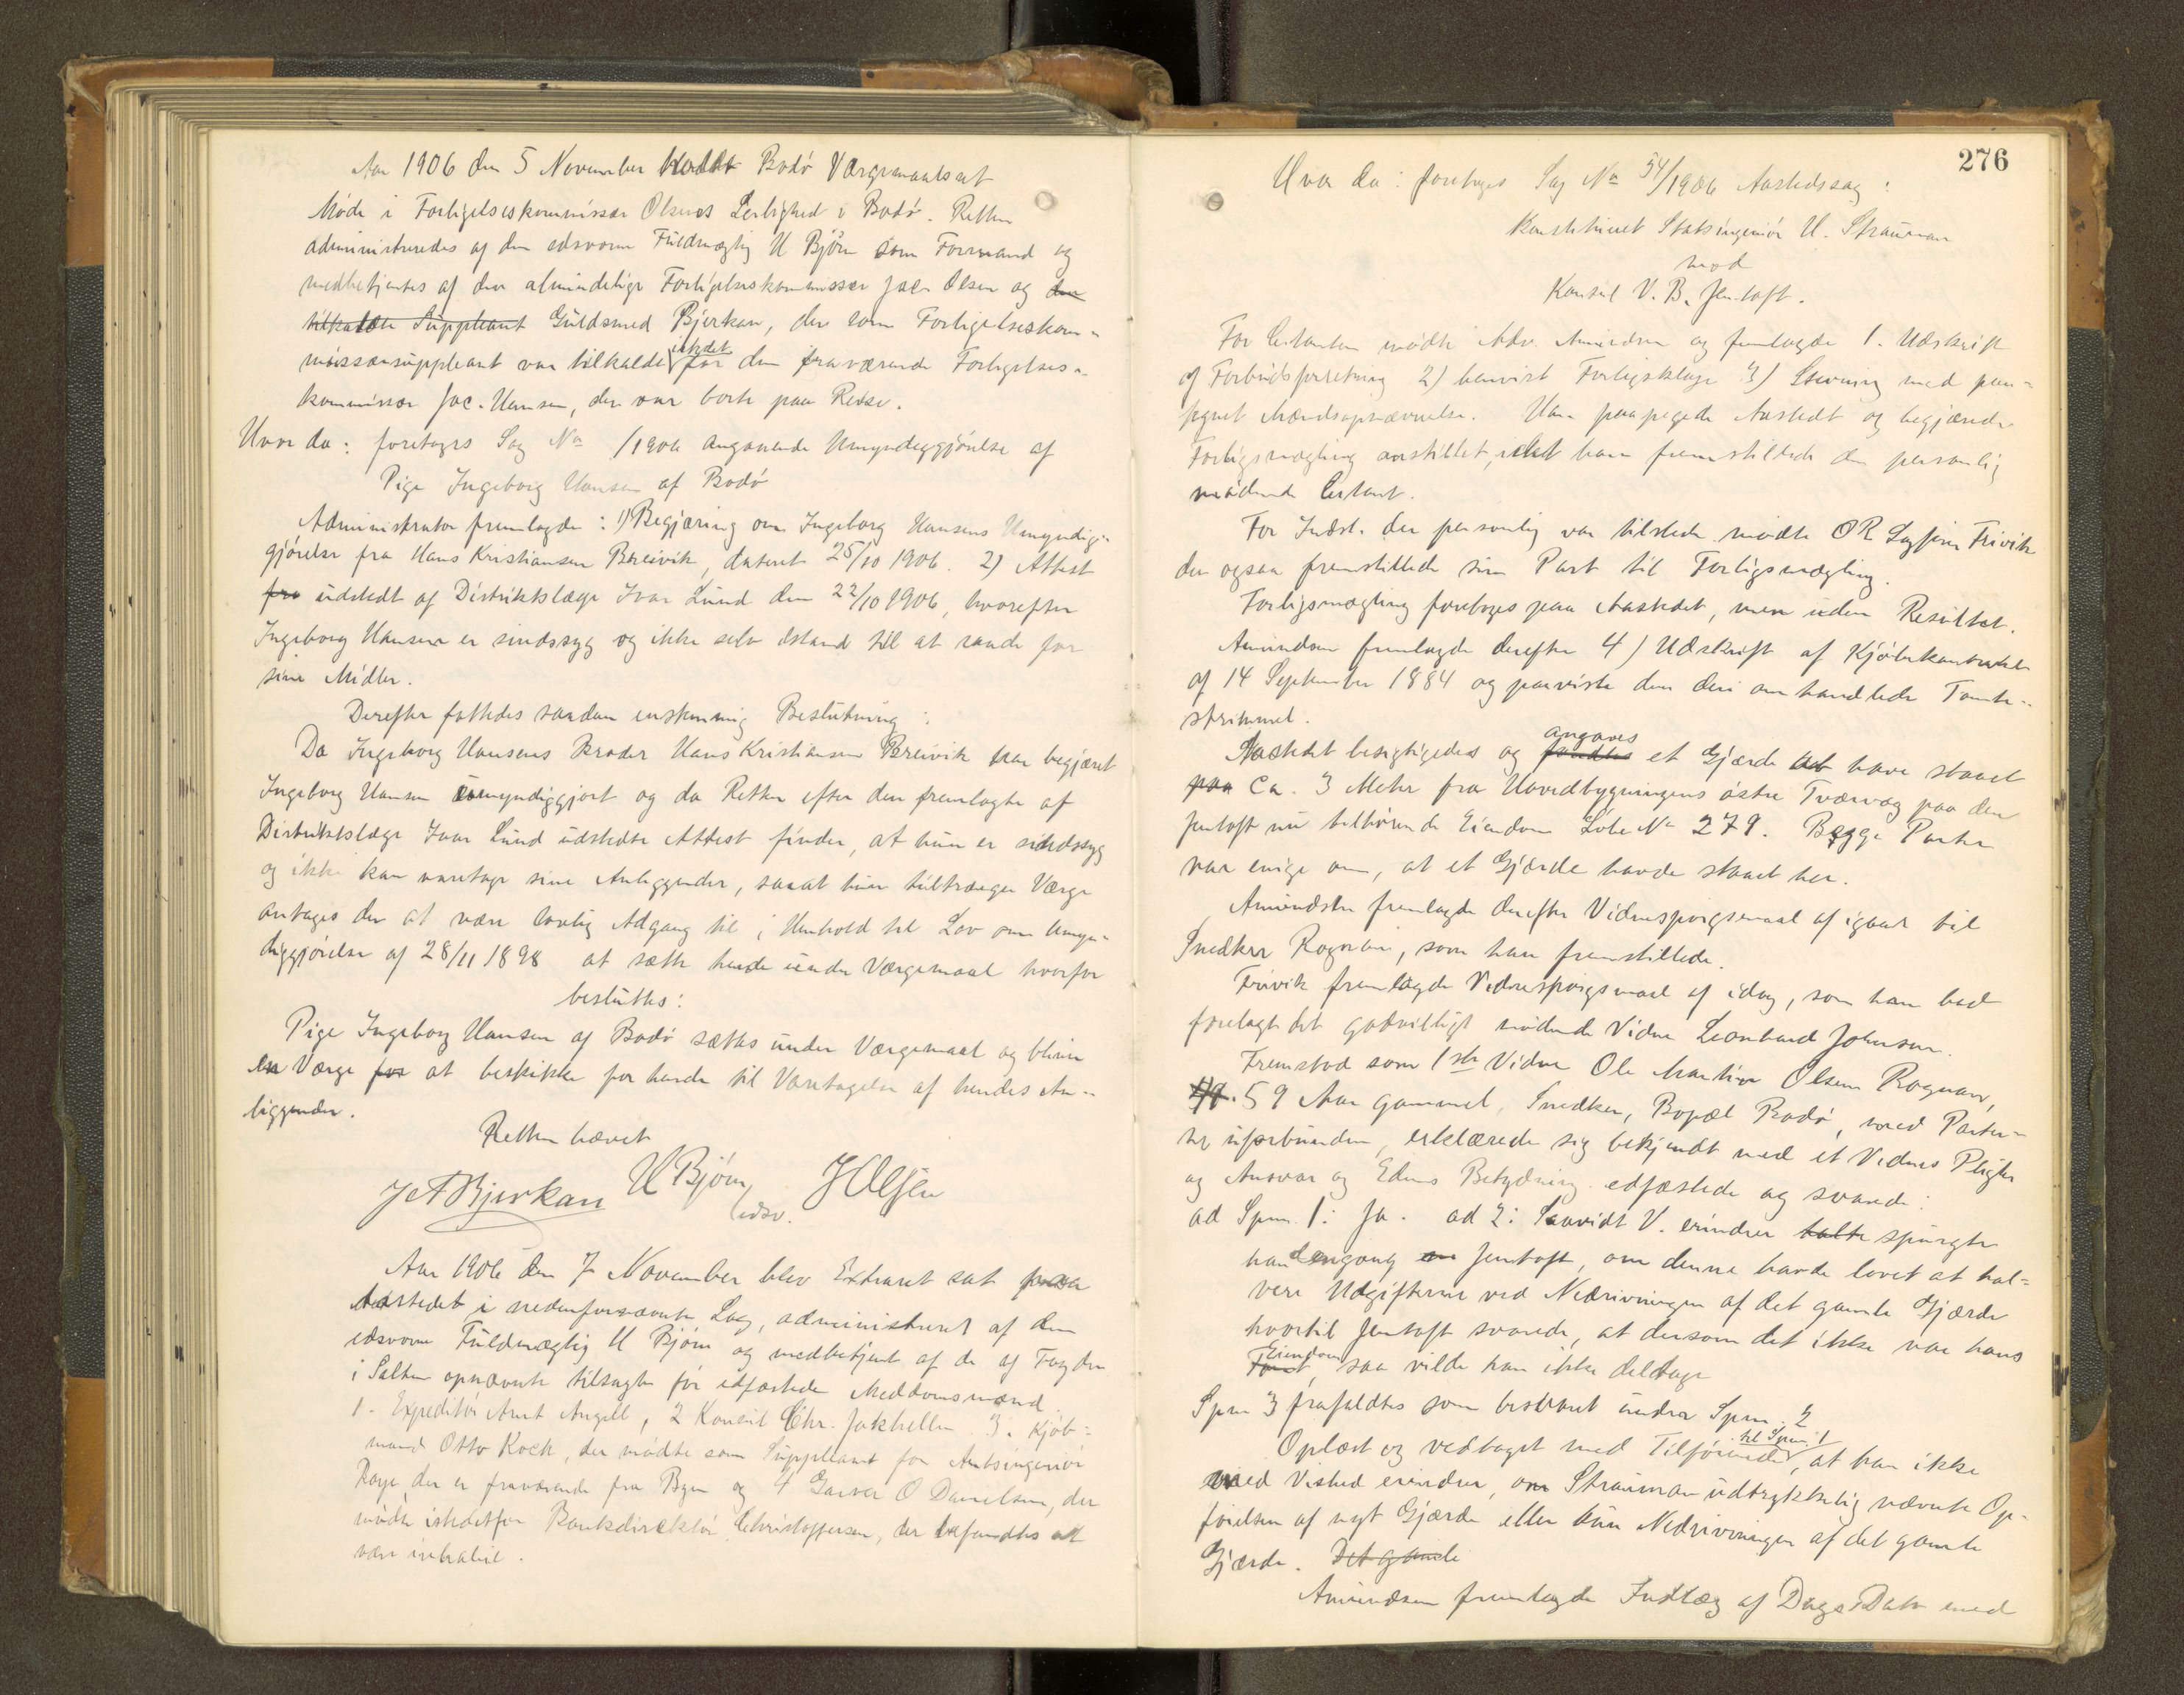 Aar 1906 den 5 November holdt Bodø Værgemaalsret
Møde i Forligelseskommissær Olsens Leilighed i Bodø. Retten
administreredes af den edsvorne Fuldmægtig U Bjørn som Formand og
medbetjentes af den almindelige Forligelseskommissær Jac. Olsen og den
tilkaldte Suppleant Guldsmed Bjerkan, der som Forligelseskom-
missærsuppleant var tilkaldt istedet for den fraværende Forligelses-
kommissær Jac. Hansen, der var borte paa Reise.
Hvor da: foretoges Sag No /1906 angaaende Umyndiggjørelse af
Pige Ingeborg Hansen af Bodø
Administrator fremlagde: 1) Begjæring om Ingeborg Hansens Umyndig-
gjørelse fra Hans Kristiansen Breivik, dateret 25/10 1906. 2) Attest
fra udstedt af Distriktslæge Ivar Lund den 22/10 1906, hvorefter
Ingeborg Hansen er sindssyg og ikke selv istand til at raade for
sine Midler.
Derefter fattedes saadan enstemmig Beslutning:
Da Ingeborg Hansens Broder Hans Kristiansen Breivik har begjæret
Ingeborg Hansen umyndiggjort og da Retten efter den fremlagte af
Distriktslæge Ivar Lund udstedte Attest finder, at hun er sindssyg
og ikke kan varetage sine Anliggender, saaat hun tiltrænger Værge
antages der at være lovlig Adgang til i Henhold til Lov om Umyn-
diggjørelse af 28/11 1898 at sætte hende under Værgemaal hvorfor
besluttes:
Pige Ingeborg Hansen af Bodø sættes under Værgemaal og bliver
en Værge for at beskikke for hende til Varetagelse af hendes An-
liggender.
Retten hævet
J A Bjerkan U Bjørn J Olsen
edsv.
Aar 1906 den 7 November blev Extraret sat paa
Aastedet i nedenfornævnte Sag, administreret af den
edsvorne Fuldmægtig U Bjørn og medbetjent af de af Fogden
i Salten opnævnte tilsagte før edfæstede Meddomsmænd
1. Expeditør Arnt Angell, 2 Konsul Chr. Jakhelln 3. Kjøb-
mand Otto Koch, der mødte som Suppleant for Amtsingeniør
Raye, der er fraværende fra Byen og 4 Garver O Danielsen, der
mødte istedetfor Bankdirektør Christoffersen, der befandtes at
være inhabil.
276
Hvor da: foretoges Sag No 54/1906 Aastedssag:
Konstitueret Statsingeniør U. Strauman
mod
Konsul V. B. Jentoft.
For Citanten mødte Adv. Amundsen og fremlagde 1. Udskrift
af Forbudsforretning 2) henvist Forligsklage 3) Stevning med paa-
tegnet Mændsopnævnelse. Han paapegede Aastedet og begjærede
Forligsmægling anstillet, idet han fremstillede den personlig
mødende Citant.
For Indst. der personlig var tilstede mødte OR Sagfører Frivik
der ogsaa fremstillede sin Part til Forligsmægling.
Forligsmægling foretoges paa Aastedet, men uden Resultat.
Amundsen fremlagde derefter 4) Udskrift af Kjøbekontrakt
af 14 September 1884 og paaviste den deri omhandlede Tomte-
strimmel.
Aastedet besigtigedes og fandtes angaves et Gjærde at have staaet
paa Ca. 3 Meter fra Hovedbygningens østre Tværvæg paa den
Jentoft nu tilhørende Eiendom Løbe No 279. Begge Parter
var enige om, at et Gjærde havde staaet her.
Amundsen fremlagde derefter Vidnespørgsmaal af igaar til
Snedker Rognan, som han fremstillede.
Frivik fremlagde Vidnespørgsmaal af idag, som han bad
forelagt det godvilligt mødende Vidne Leonhard Johnsen.
Fremstod som 1ste Vidne Ole Martin Olsen Rognan,
59 Aar gammel, Snedker, Bopæl Bodø, med Parter-
ne uforbunden, erklærede sig bekjendt med et Vidnes Pligter
og Ansvar og Edens Betydning edfæstede og svarede:
ad Spm. 1: Ja. ad 2: Saavidt V. erindrer talte spurgte
han engang om Jentoft, om denne havde lovet at hal-
vere Udgifterne ved Nedrivningen af det gamle Gjærde
hvortil Jentoft svarede, at dersom det ikke var hans
Tomt Eiendom, saa vilde han ikke deltage
Spm 3 frafaldtes som besvaret under Spm. 2
Oplæst og vedtaget med Tilføiende til Spm. 1, at han ikke
med Vished erindrer, om Strauman udtrykkelig nævnte Op-
førelsen af nyt Gjærde eller kun Nedrivningen af det gamle
Gjærde. Det gamle
Amundsen fremlagde Indlæg af Dags Dato med